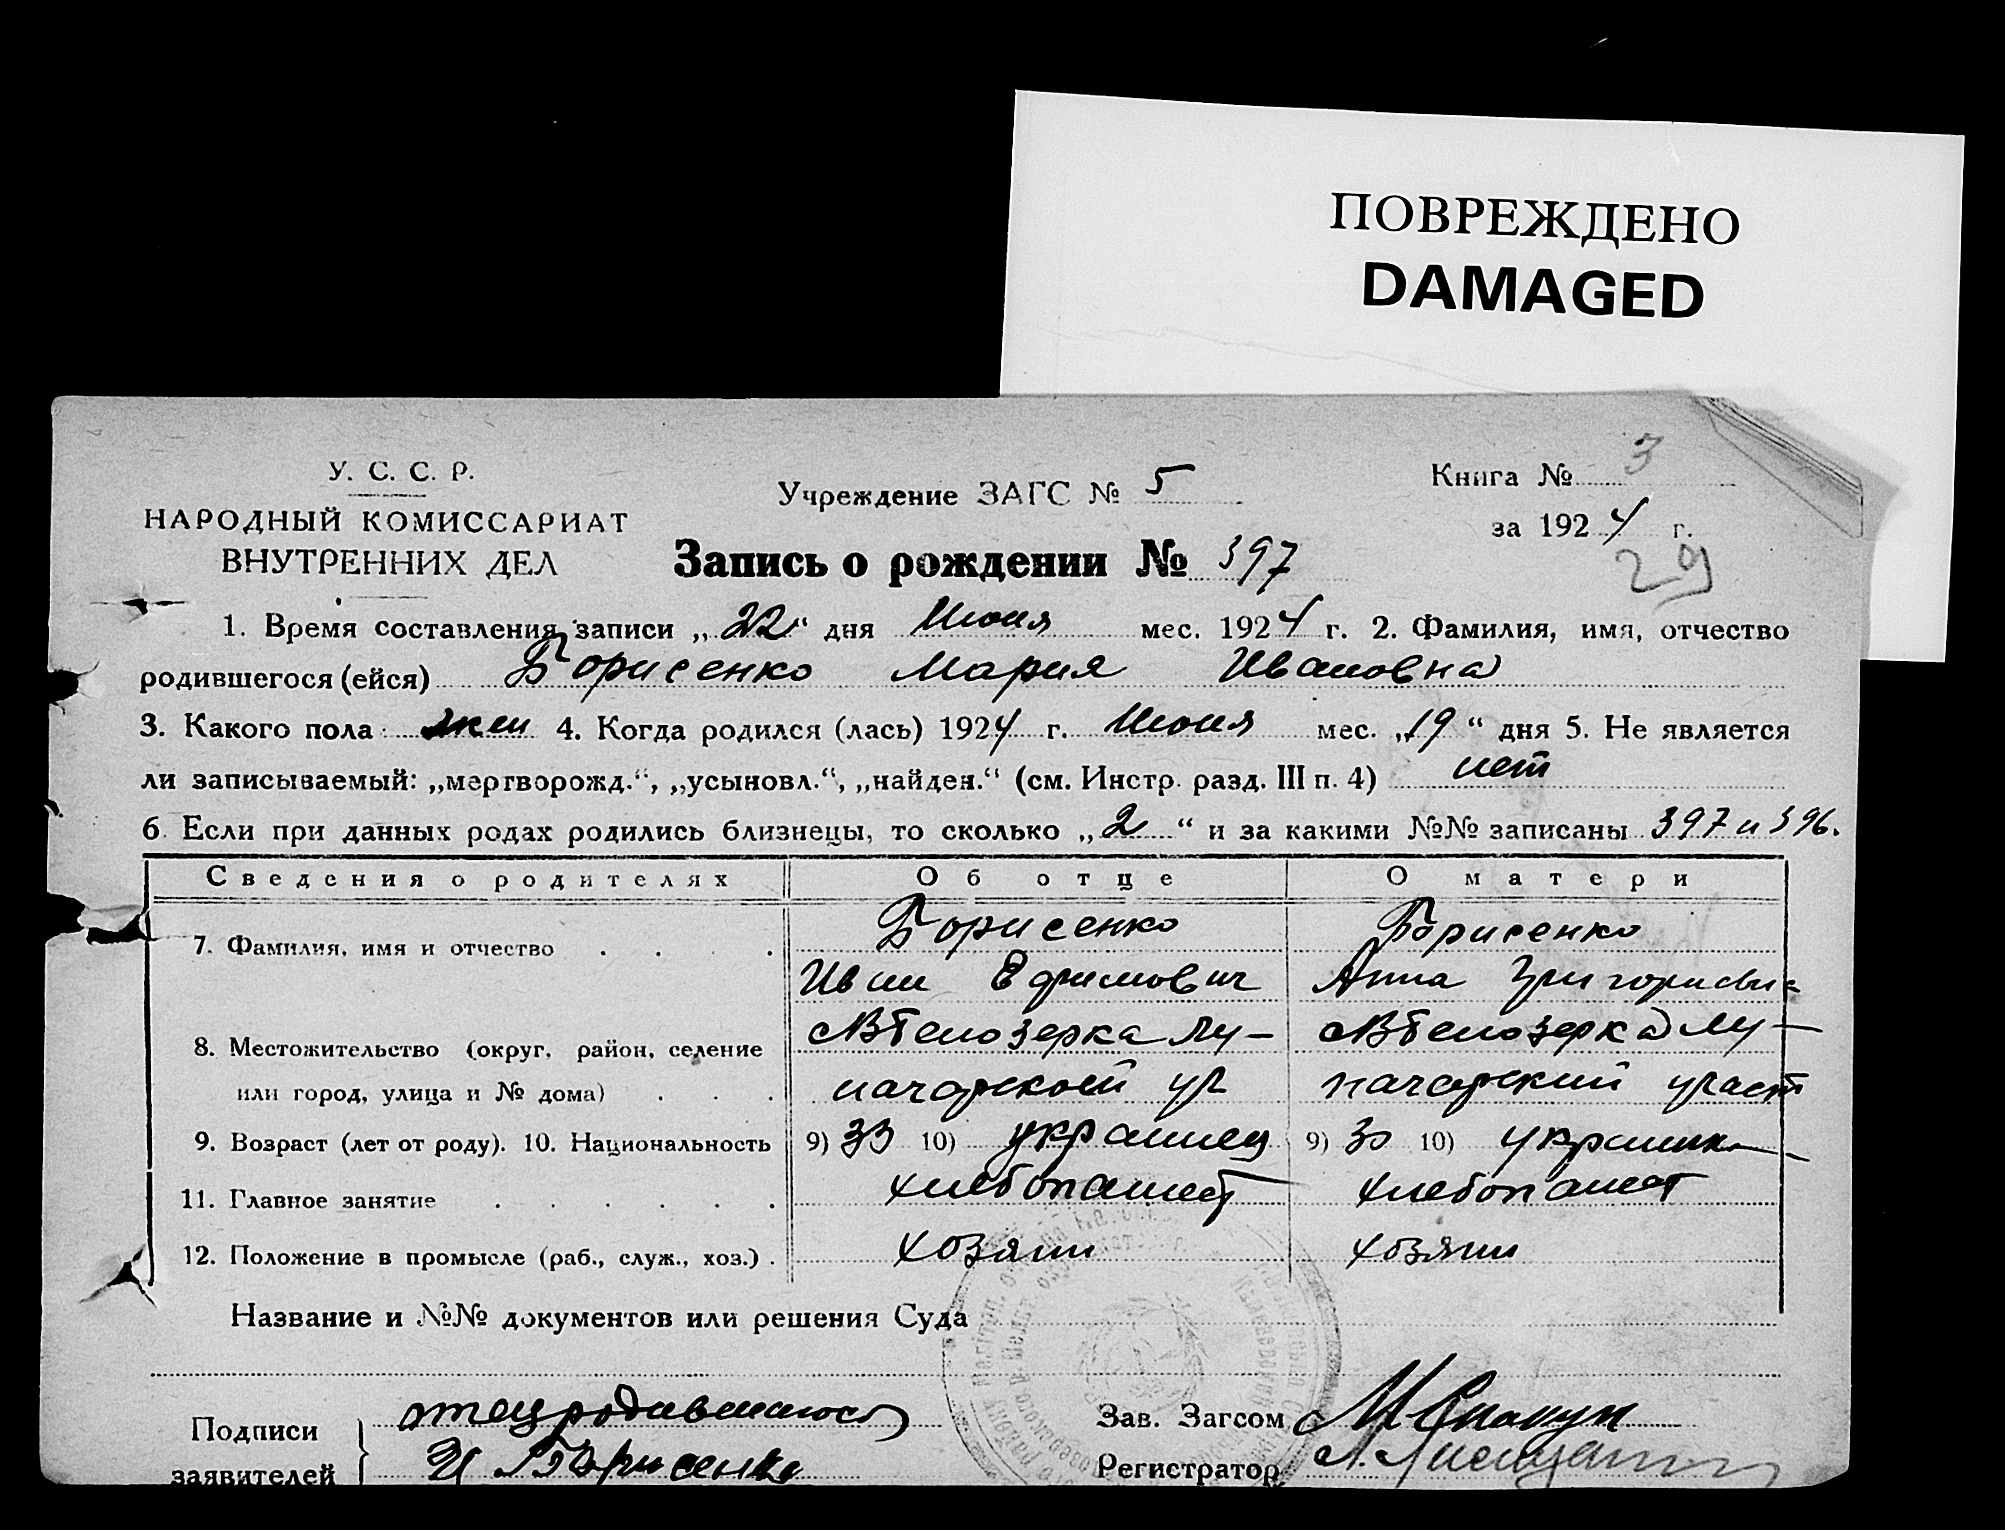 ПОВРЕЖДЕНО
DAMAGED
У. С. С. Р.
НАРОДНЫЙ КОМИССАРИАТ
ВНУТРЕННИХ ДЕЛ
Учреждение ЗАГС № 5
Книга № 3
за 1924 г.
29
Запись о рождении № 397
1. Время составления записи „22“ дня Июня мес. 1924 г. 2. Фамилия, имя, отчество
родившегося (ейся) Борисенко Мария Ивановна
3. Какого пола жен 4. Когда родился (лась) 1924 г. Июня мес. „19“ дня 5. Не является
ли записываемый: „мертворожд.“, „усыновл.“, „найден.“ (см. Инстр. разд. III п. 4) нет
6. Если при данных родах родились близнецы, то сколько „2“ и за какими №№ записаны 397 и 396.
Сведения о родителях Об отце О матери
7. Фамилия, имя и отчество Борисенко Борисенко
Иван Ефимович Анна
8. Местожительство (округ, район, селение Белозерка Лу- Белозерка Лу-
или город, улица и № дома)
9. Возраст (лет от роду). 10. Национальность 9) 33 10) украинец 9) 30 10) украинка
11. Главное занятие хлебопашец хлебопашест
12. Положение в промысле (раб., служ., хоз.) хозяин хозяин
Название и №№ документов или решения Суда
Подписи
заявителей
отец родившагося
И Борисенко
Зав. Загсом
Регистратор